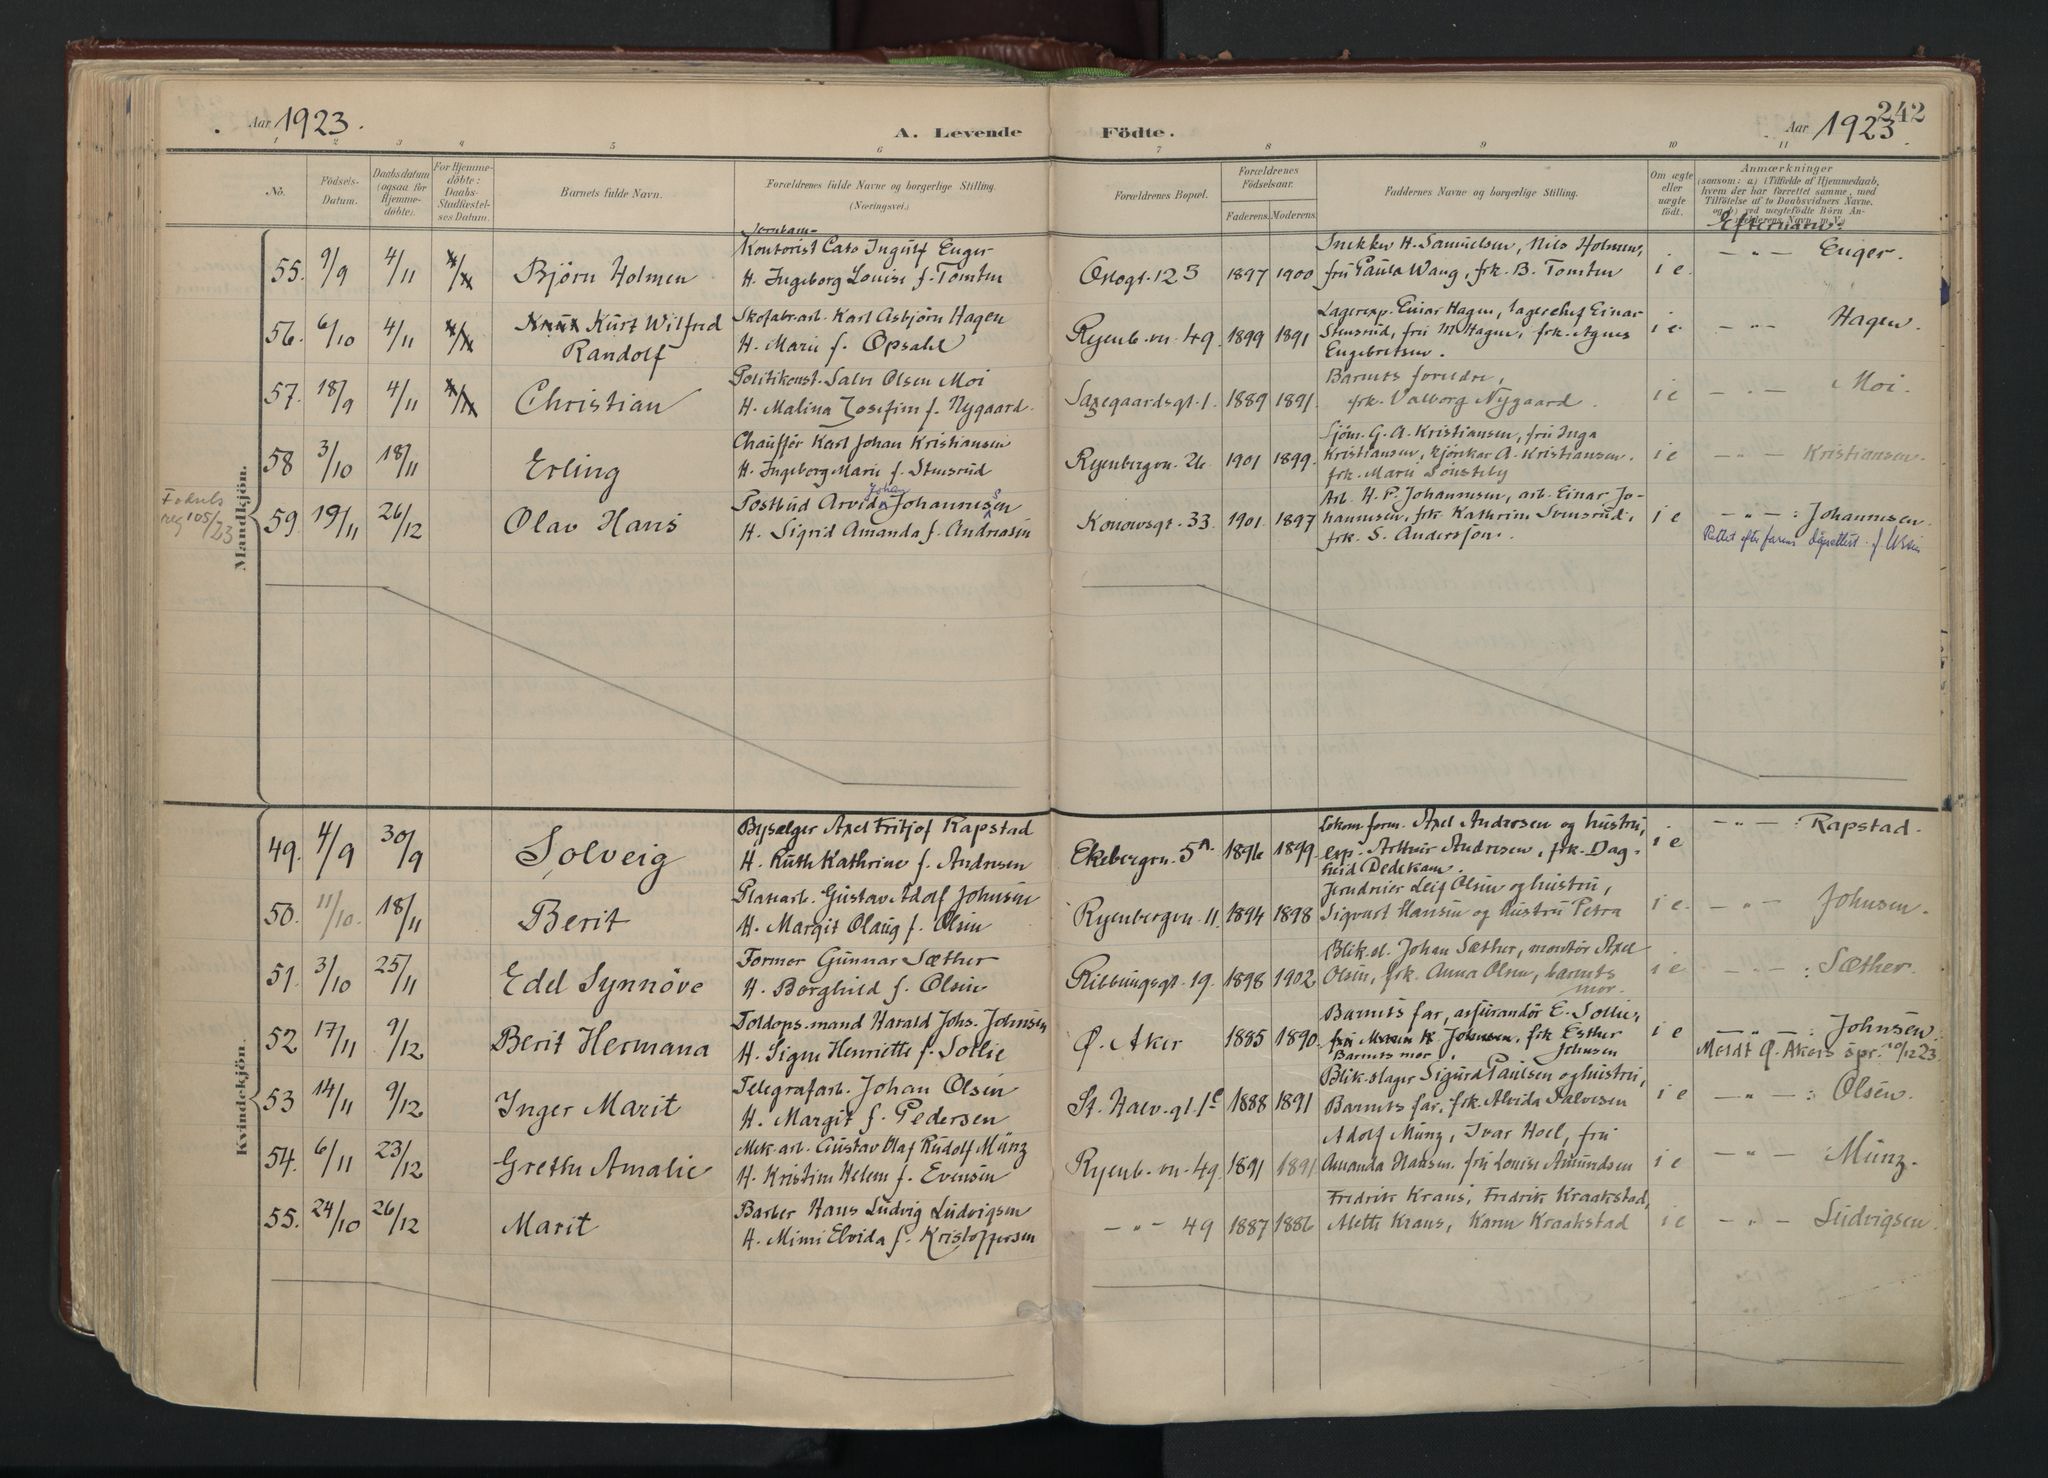 Aar 1923.
A. Levende Födte.
Aar 1923
242
1 2 3 4 5 6 7 8 9 10 11
No. | Födsels-Datum. | Daabsdatum (ogsaa for Hjemme-döbte). | For Hjemme-döbte: Daabs-Stadfæstel-ses Datum. | Barnets fulde Navn. | Forældrenes fulde Navne og borgerlige Stilling. (Næringsvei.) | Forældrenes Bopæl. | Forældrenes Födselsaar. Faderens. Moderens. | Faddernes Navne og borgerlige Stilling. | Om ægte eller uægte födt. | Anmærkninger (saasom: a) i Tilfælde af Hjemmedaab, hvem der har forrettet samme, med Tilföielse af to Daabsvidners Navne, og b) ved uægtefödte Börn An-
Efternavn:
Mandkjön.
55. 9/9 4/11 Björn Holmen
Kontorist Cato Ingulf Enger
H. Ingeborg Louise f. Tomter
Oslogt. 123 1897 1900
Snekker H. Samuelsen, Nils Holmen,
fru Paula Wang, frk. B. Tomter
i e. — " — Enger.
56. 6/10 4/11 Kurt Wilfred
Randolf
Skofabr.arb. Karl Asbjörn Hagen
H. Marie f. Opsahl
Ryenb.vn. 49. 1899 1891
Lagerexp. Einar Hagen, lagerchef Einar
Stensrud, fru M. Hagen, frk. Agnes
Engebretsen.
i e. — " — Hagen.
57. 18/9 4/11 Christian
Politikonst. Salve Olsen Moi
H. Malina Josefine f. Nygaard.
Saxegaardsgt. 1. 1889 1891.
Barnets foreldre,
frk. Valborg Nygaard.
i e — " — Moi.
58 3/10 18/11 Erling
Chauffør Karl Johan Kristiansen
H. Ingeborg Marie f. Stensrud
Ryenbergvn. 26. 1901 1899.
Sjöm. G. A. Kristiansen, fru Inga
Kristiansen, A. Kristiansen.
frk. Marie Sönsteby
i e — " — Kristiansen.
Fødsels
reg 105/23
59. 19/11 26/12 Olav Hans
Postbud Arvid Johan Johannessen
H. Sigrid Amanda f. Andreasen
Konowsgt. 33. 1901. 1897
Arb. H. P. Johannesen, arb. Einar Jo-
hannesen, frk. Kathrine Svensrud,
frk. S. Andersson.
i e — " — : Johannesen.
Rettet efter farens
Kvindekjön.
49. 4/9 30/9 Solveig
Bysælger Axel Fritjof Rapstad
H. Ruth Kathrine f. Andresen
Ekebergvn. 5 A. 1896 1899.
Lokom.form. Axel Andresen og hustru,
exp. Arthur Andresen, frk. Dag-
Dedekam.
i e — " — : Rapstad.
50. 11/10. 18/11 Berit
Platearb. Gustav Adolf Johnsen
H. Margit Olaug f. Olsen
Ryenbergvn. 11. 1894 1898
Jerndreier Leif Olsen og hustru,
Sigvart Hansen og hustru Petra
i e. — " — Johnsen.
51. 3/10 25/11 Edel Synnöve
Former Gunnar Sæther
H. Borghild f. Olsen
Ribbungsgt. 19. 1898 1902
Blik.sl. Johan Sæther, montör Axel
Olsen, frk. Anna Olsen, barnets
mor.
i e — " — : Sæther.
52 17/11 9/12 Berit Hermana
Toldops.mand Harald Johs. Johnsen
H. Signe Henriette f. Sollie
Ø. Aker 1885 1890.
Barnets far, assurandør E. Sollie,
Johnsen, frk Esther
Barnets mor. Johnsen
i e — " — : Johnsen.
Meldt Ø. Akers spr. 10/12 23.
53 14/11 9/12 Inger Marit
Telegrafarb. Johan Olsen
H. Margit f. Pedersen
St. Halv.gt. 1 c 1888 1891
Blik.slager Sigurd Paulsen og hustru,
Barnets far, frk. Alvida Salvesen
i e — " — : Olsen.
54. 6/11 23/12 Grethe Amalie
Mek.arb. Gustav Olaf Rudolf Münz
H. Kristine Helene f. Evensen
Ryenb.vn. 49. 1891 1891
Adolf Münz, Ivar Hoel, fru
Amanda Hansen, fru Louise Amundsen
i e — " — Münz.
55. 24/10 26/12 Marit
Barber Hans Ludvig Ludvigsen
H. Mimi Elvida f. Kristoffersen
— " — 49 1887 1886
Fredrik Kraus, Fredrik Kraakstad,
Mette Kraus, Karen Kraakstad
i e — " — Ludvigsen.